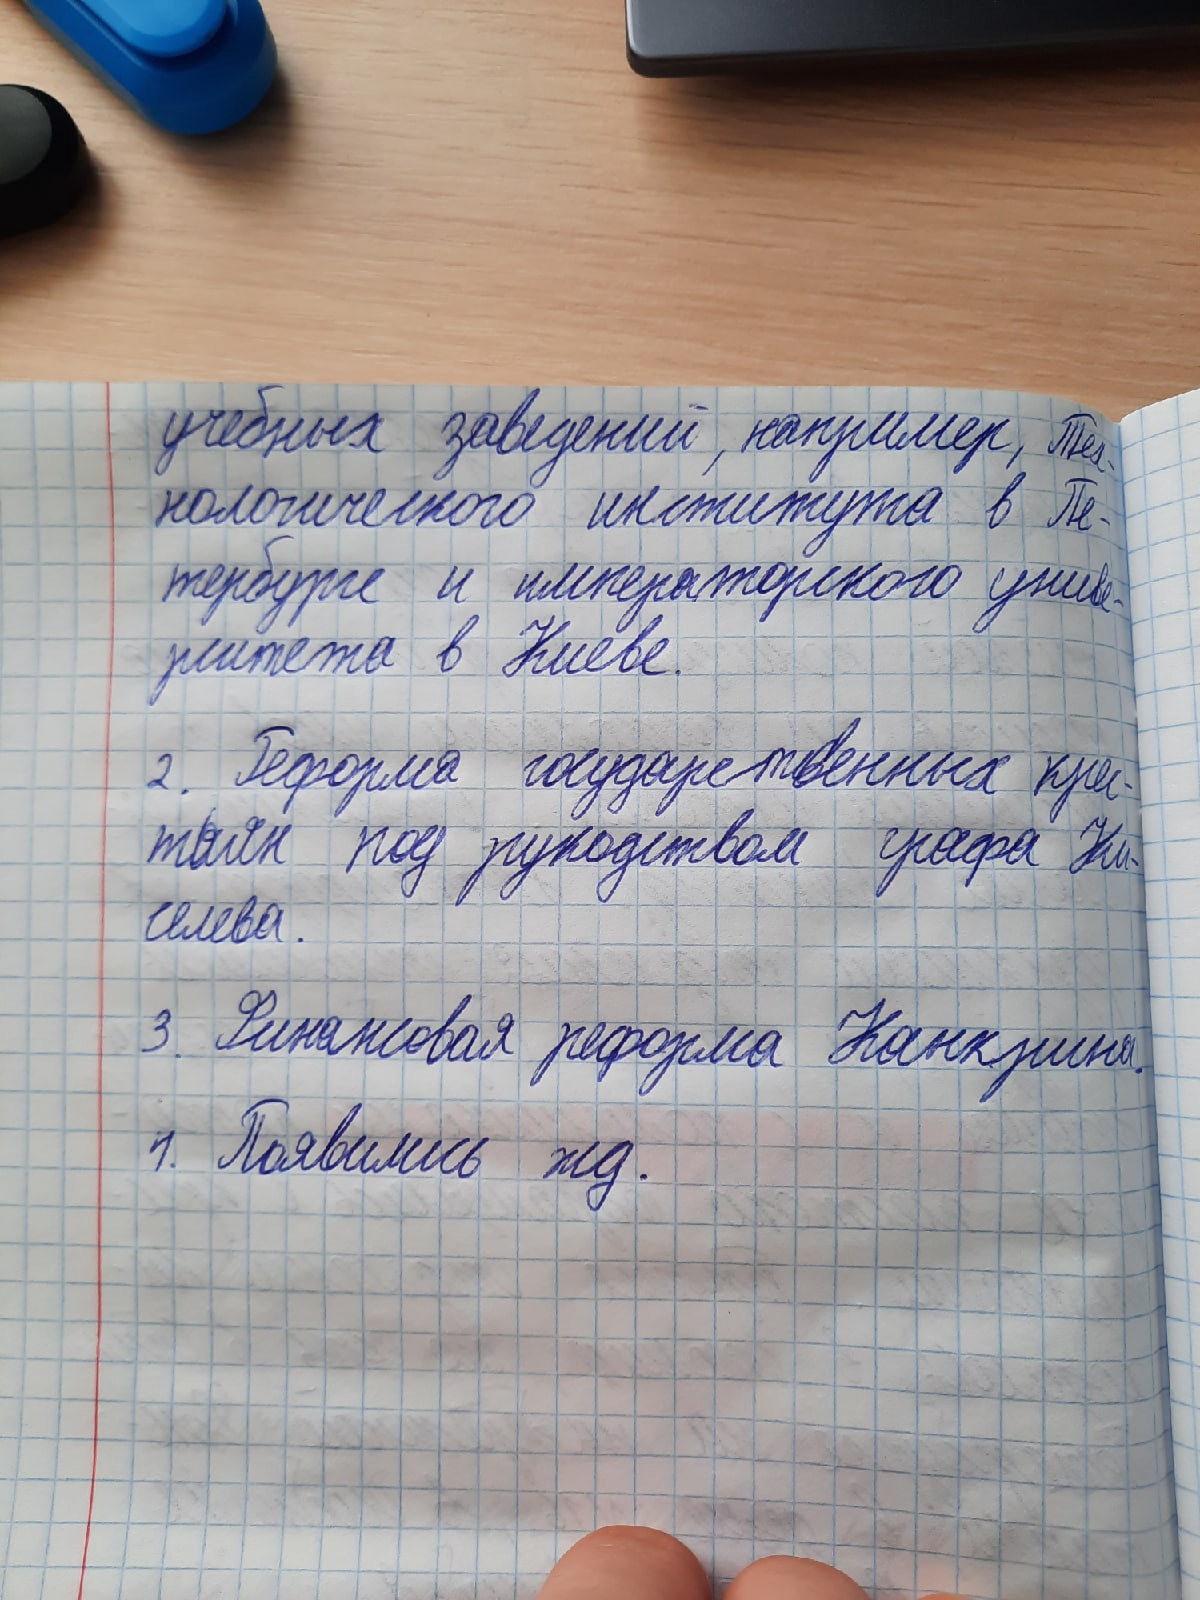 учебных заведений, например, Тех-
нологического института в Пе-
тербурге и императорского униве-
рситета в Киеве.
2. Реформа государственных крес-
тьян под рукодством графа Ки-
селева.
3. Финансовая реформа Канкрина.
4. Появились жд.